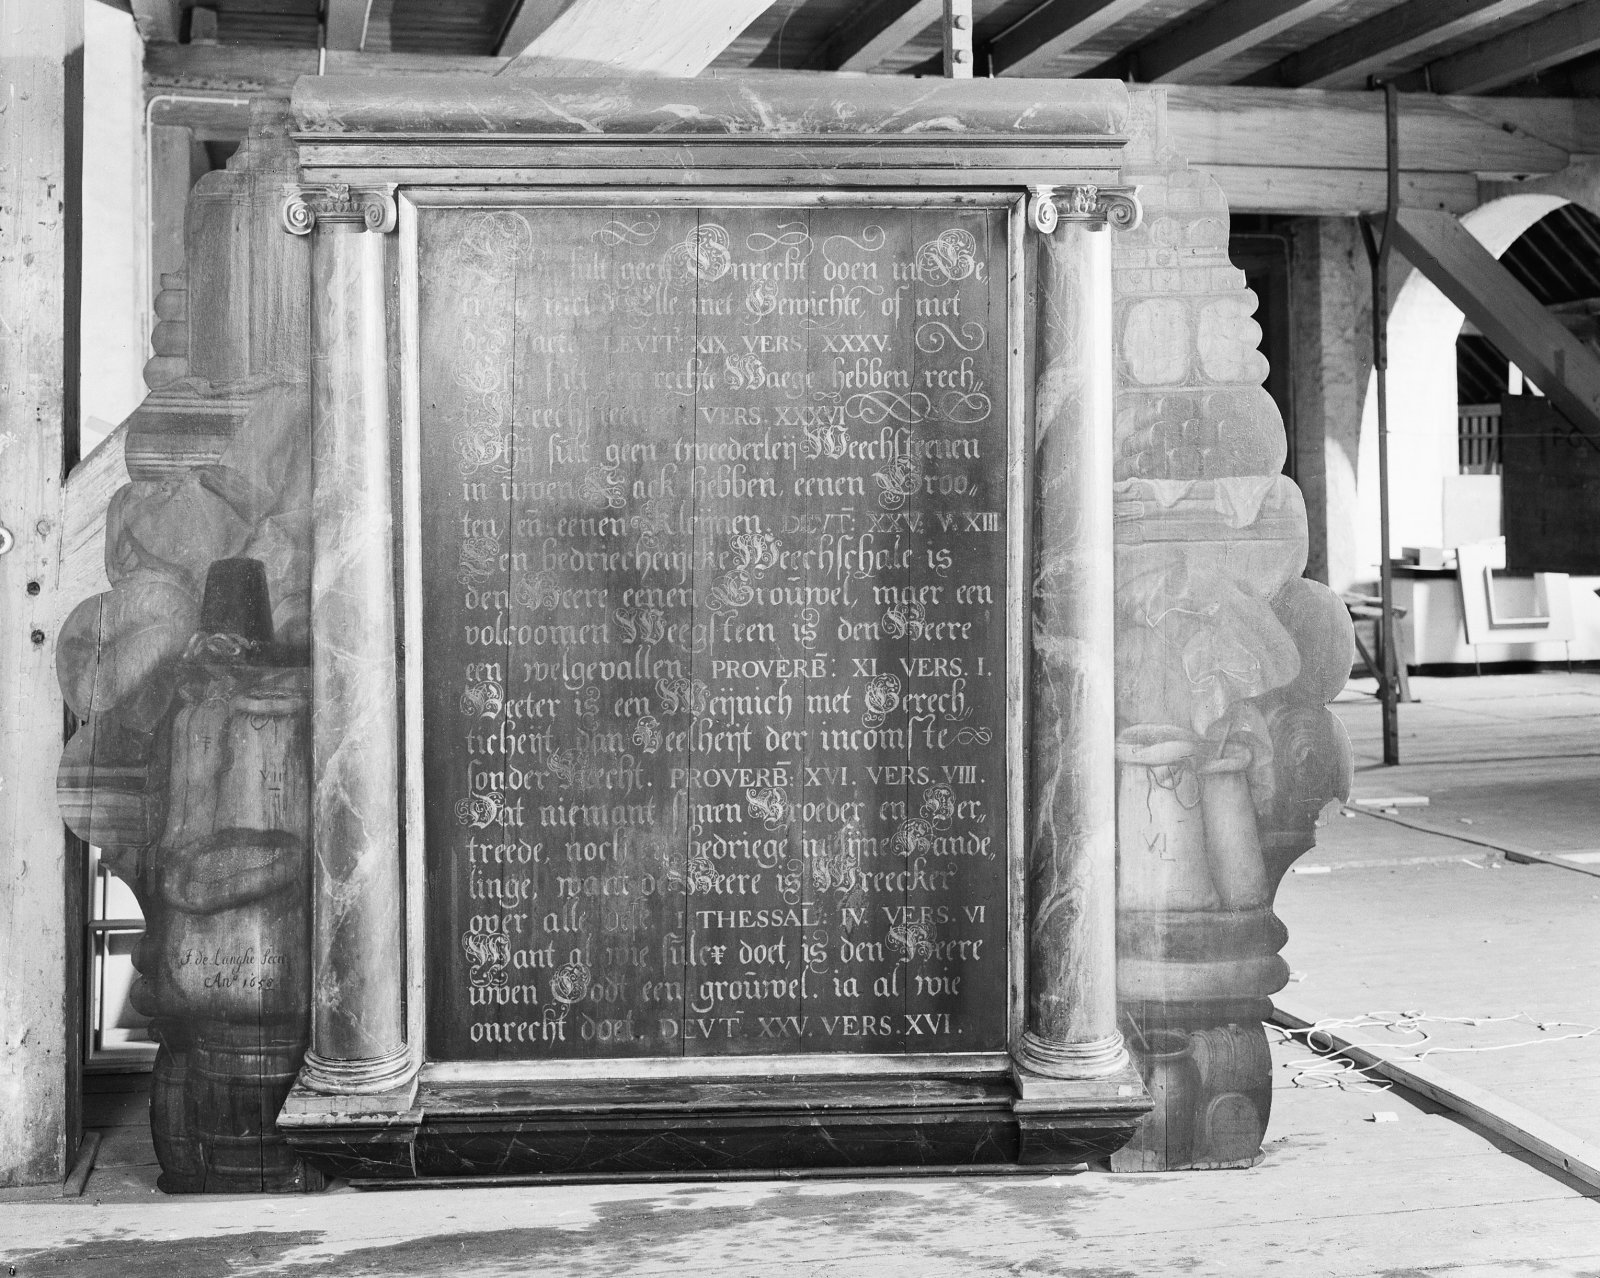 sult geen Onrecht doen int Ge„
met Elle met Gewichte, of met
LEVIT: XIX VERS. XXXV.
Ghij sult een rechte Waege hebben rech„
VERS. XXXVI
Ghij sult geen tweederleij Weechsteenen
in ūwen Sack hebben, eenen Groo„
ten, eñ eenen Kleijnen. DEVT: XXV: V. XIII
Een bedriechenjcke Weechschale is
den Heere eenen Groūwel, maer een
volcoomen Weegsteen is den Heere
een welgevallen. PROVERB̄: XI. VERS. I.
Beeter is een Weijnich met Gerech„
ticheijt, dan Veelheijt der incomste
sonder Recht. PROVERB̄: XVI. VERS. VIII.
Dat niemant sijnen Broeder en Ver„
treede, noch en bedriege in sijne Hande„
linge, want de Heere is Wreecker
over alle dese. I THESSAL: IV. VERS. VI
Want al wie sūlcx doet, is den Heere
uwen Godt een groūwel. ia al wie
onrecht doet. DEVT: XXV. VERS. XVI.
VIII
VL
F. de Langhe fecit
An° 1658